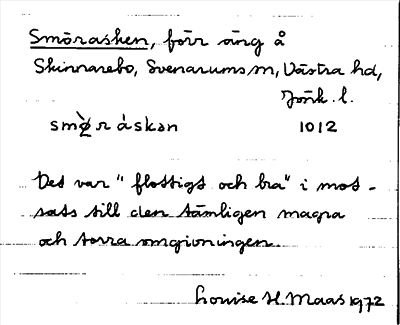 Smörasken, förr äng å
Skinnarebo, Svenarums sn, Västra hd,
Jönk. l.
smø̀ráskan 1012
Det var "flottigt och bra" i mot-
sats till den tämligen magra
och torra omgivningen.
Louise H. Maas 1972